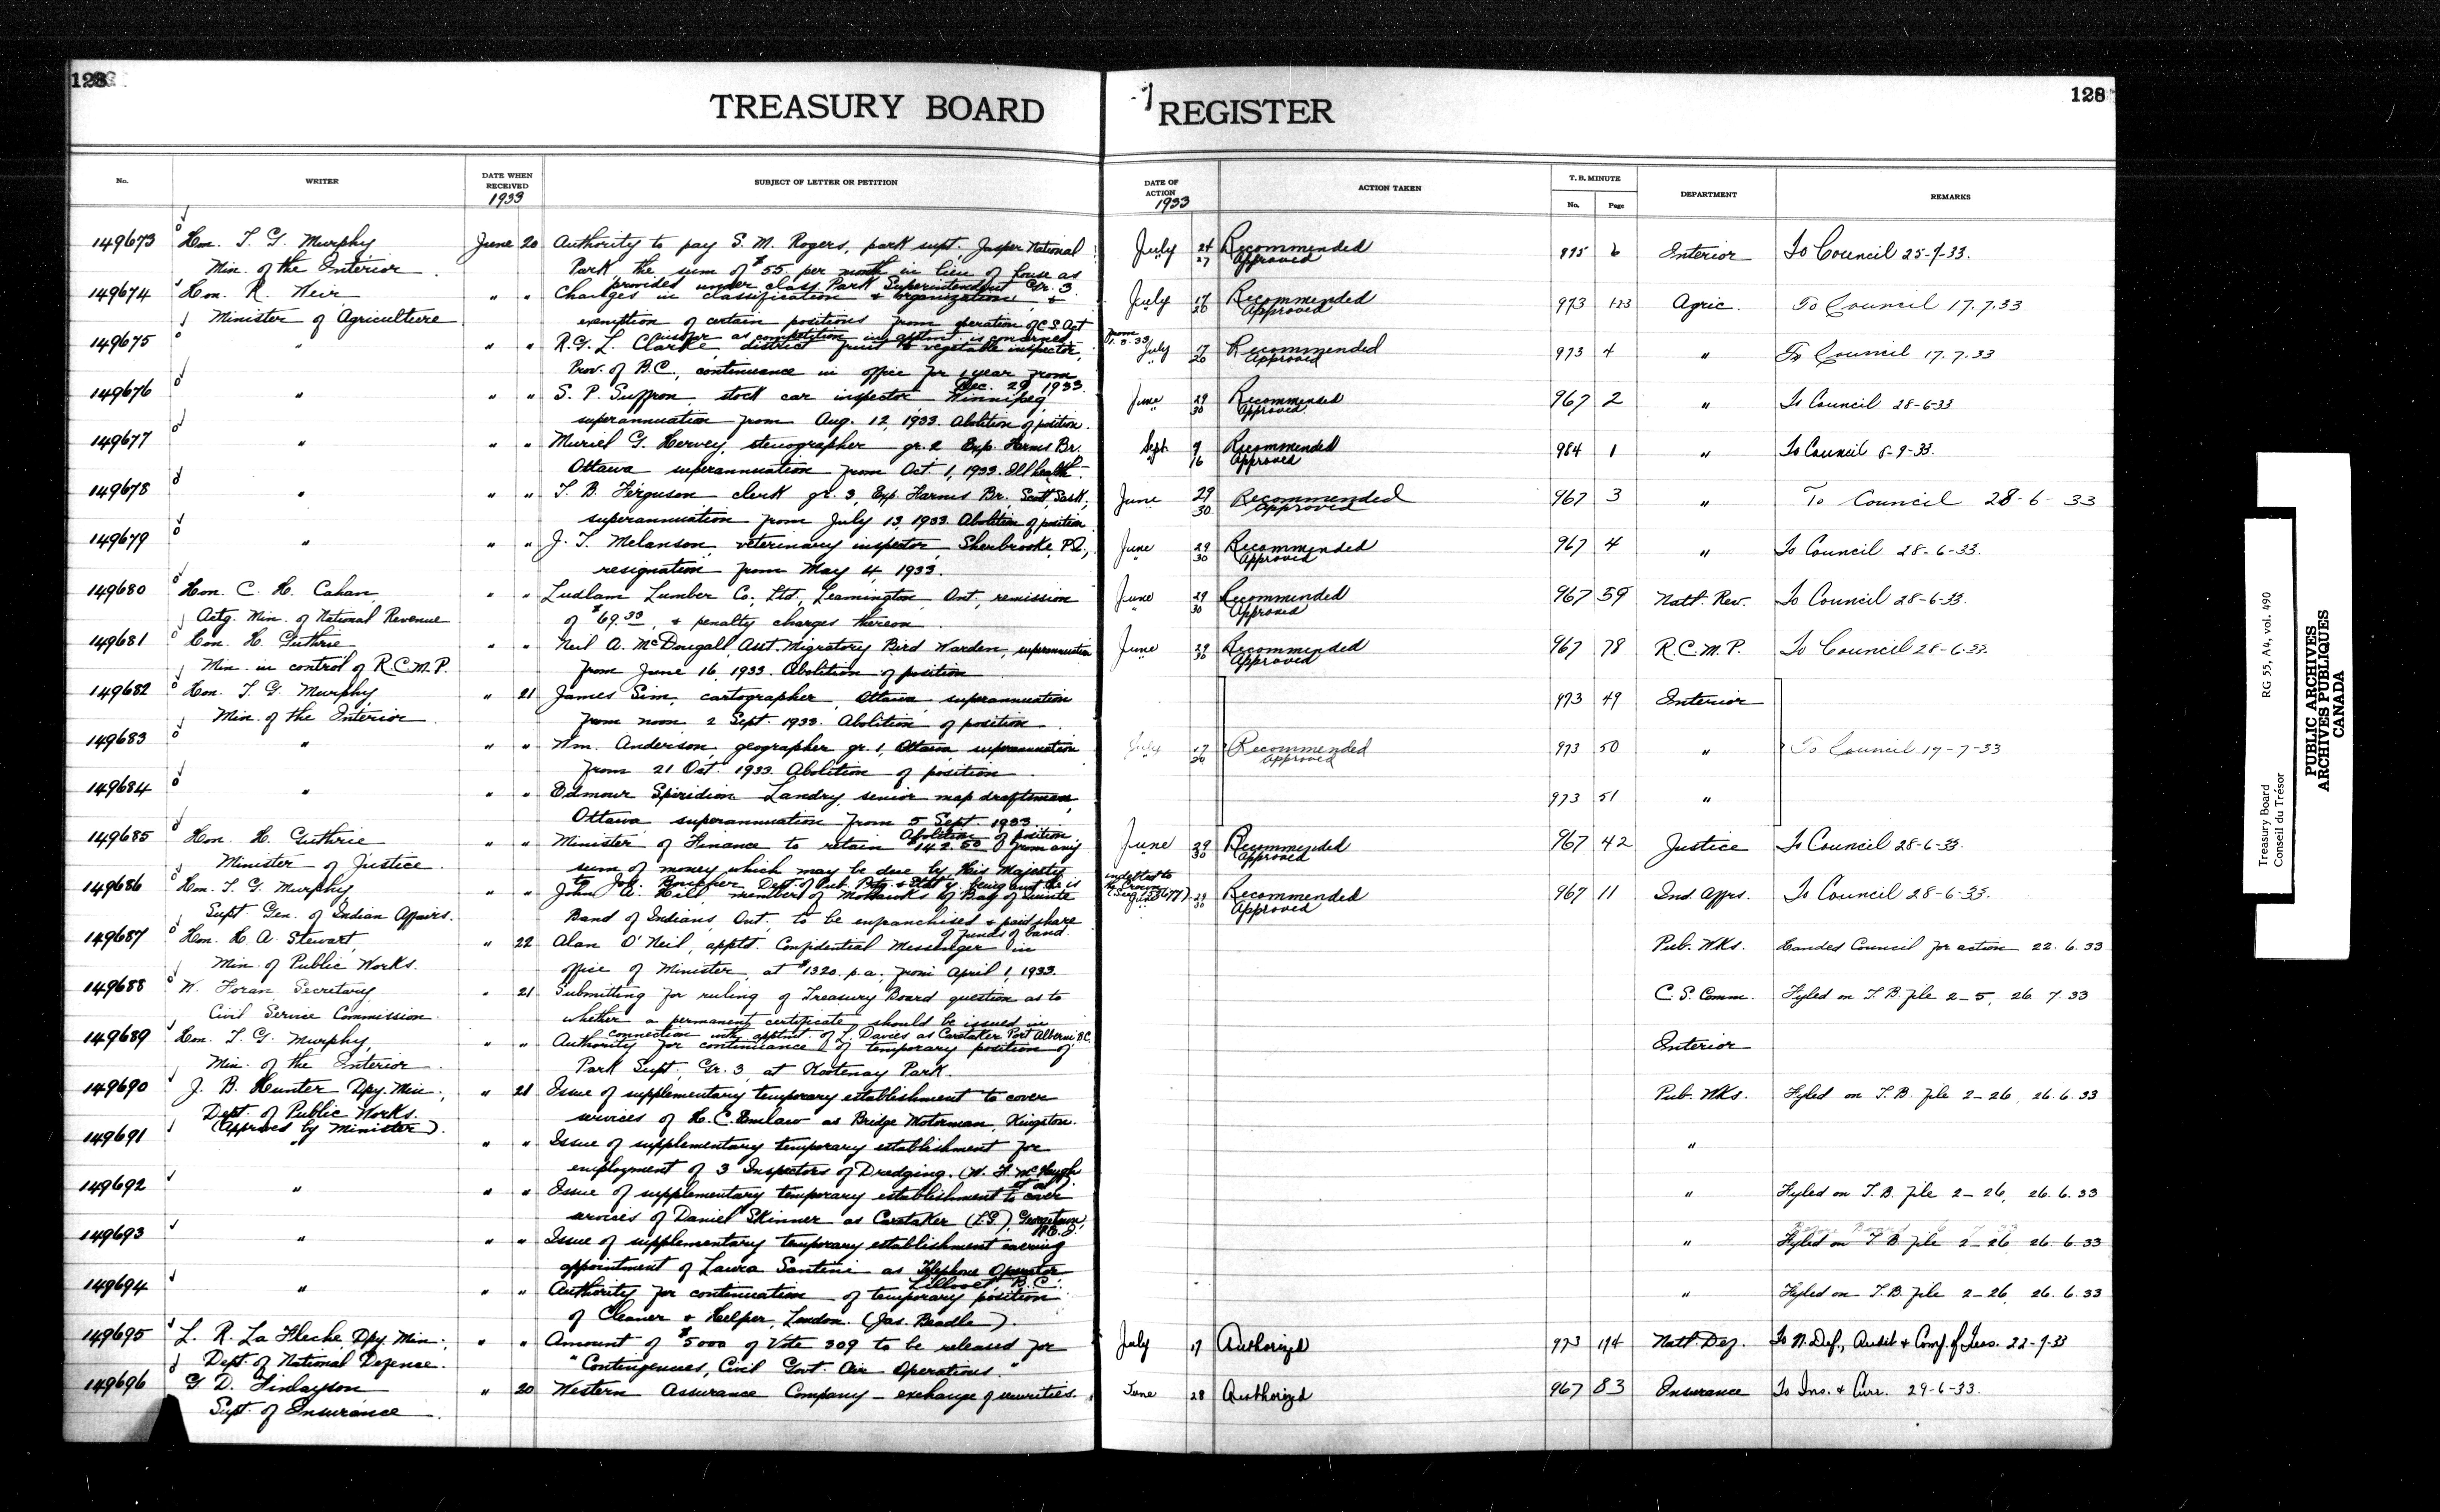 128
128
TREASURY BOARD REGISTER
No.
WRITER
DATE WHEN RECEIVED
1933
SUBJECT OF LETTER OR PETITION
DATE OF ACTION
1933
ACTION TAKEN
T. B. MINUTE
No. Page
DEPARTMENT
REMARKS
149673 Hon. T. G. Murphy June 20 Authority to pay S. M. Rogers, park supt., Jasper National July 24 Recommended 995 6 Interior To Council 25-7-33.
Min. of the Interior Park, the sum of $55. per month in lieu of house as " 27 Approved
provided under class Park Superintendent Gr. 3.
149674 Hon. R. Weir " " Changes in classification & organization, & July 17 Recommended 973 123 Agric. To Council 17.7.33
Minister of Agriculture exemption of certain positions from operation of C.S. Act " 20 Approved
insofar as competition in apptmt. is concerned from 1.3.33
149675 " " " R. G. L. Clarke, district fruit & vegetable inspector, July 17 Recommended 973 4 " To Council 17.7.33
Prov. of B.C., continuance in office for 1 year from " 20 Approved
Dec. 29, 1933.
149676 " " " S. P. Suffron, stock car inspector, Winnipeg, June 29 Recommended 967 2 " To Council 28-6-33
superannuation from Aug. 12, 1933. Abolition of position. " 30 Approved
149677 " " " Muriel G. Hervey, stenographer gr. 2 Exp. Farms Br. Sept. 9 Recommended 984 1 " To Council 8-9-33.
Ottawa superannuation from Oct. 1, 1933. Ill health. " 16 Approved
149678 " " " T. B. Ferguson clerk gr. 3, Exp. Farms Br., Scott, Sask., June 29 Recommended 967 3 " To Council 28-6-33
superannuation from July 13, 1933. Abolition of position 30 Approved
149679 " " " J. T. Melanson, veterinary inspector, Sherbrooke P.Q., June 29 Recommended 967 4 " To Council 28-6-33.
resignation from May 4, 1933. " 30 Approved
149680 Hon. C. H. Cahan, " " Ludlam Lumber Co., Ltd., Leamington, Ont., remission June 29 Recommended 967 59 Natl. Rev. To Council 28-6-33.
Actg. Min. of National Revenue of $69.33, & penalty charges thereon. " 30 Approved
149681 Hon. H. Guthrie " " Neil A. McDougall, Asst. Migratory Bird Warden, superannuation June 29 Recommended 967 78 R.C.M.P. To Council 28-6-33.
Min. in control of R.C.M.P. from June 16, 1933. Abolition of position " 30 Approved
149682 Hon. T. G. Murphy " 21 James Sim, cartographer, Ottawa superannuation 973 49 Interior
Min. of the Interior from noon 2 Sept. 1933. Abolition of position
149683 " " " Wm. Anderson, geographer gr. 1, Ottawa superannuation July 17 Recommended 973 50 " To Council 17-7-33
from 21 Oct. 1933. Abolition of position " 20 Approved
149684 " " " Edmour Spiridion Landry, senior map draftsman, 973 51 "
Ottawa superannuation from 5 Sept. 1933.
Abolition of position
149685 Hon. H. Guthrie " " Minister of Finance to retain $142.50 from any June 29 Recommended 967 42 Justice To Council 28-6-33.
Minister of Justice sum of money which may be due by His Majesty " 30 Approved
to Dept. of Pub. Ptg. & Staty. being amt. he is indebted to the Crown
149686 Hon. T. G. Murphy " " John A. Hill, member of Mohawks of Bay of Quinte June 29 Recommended 967 11 Ind. Affrs. To Council 28-6-33.
Supt. Gen. of Indian Affairs. Band of Indians, Ont., to be enfranchised & paid share " 30 Approved
of funds of band.
149687 Hon. H. A. Stewart, " 22 Alan O'Neil, apptd. Confidential Messenger in Pub. Wks. Handed Council for action 22.6.33
Min. of Public Works. office of Minister, at $1320. p.a., from April 1, 1933.
149688 W. Foran Secretary " 21 Submitting for ruling of Treasury Board question as to C.S. Comm. Fyled on T.B. file 2-5, 26 7.33
Civil Service Commission. whether a permanent certificate should be issued in
connection with apptmt. of L. Davies as Caretaker Port Alberni B.C.
149689 Hon. T. G. Murphy, " " Authority for continuance of temporary position of Interior
Min. of the Interior. Park Supt., Gr. 3, at Kootenay Park.
149690 J. B. Hunter Dpy. Min., " 21 Issue of supplementary temporary establishment to cover Pub. Wks. Fyled on T.B. file 2-26, 26.6.33
Dept. of Public Works. services of H. C. Emlaw as Bridge Motorman, Kingston.
(Approved by Minister).
149691 " " " Issue of supplementary temporary establishment for "
employment of 3 Inspectors of Dredging. (W. F. McHugh et al).
149692 " " " Issue of supplementary temporary establishment to cover " Fyled on T.B. file 2-26, 26.6.33
services of Daniel Skinner as Caretaker (L.G.), Georgetown, P.E.I.
149693 " " " Issue of supplementary temporary establishment covering " Fyled on T.B. file 2-26, 26.6.33
appointment of Laura Santini as Telephone Operator
Lillooet, B.C.
149694 " " " Authority for continuation of temporary position " Fyled on T.B. file 2-26, 26.6.33
of Cleaner & Helper, London. (Jas. Beadle).
149695 L. R. La Fleche, Dpy. Min., " " Amount of $5000 of Vote 309 to be released for July 17 Authorized 973 174 Natl. Def. To N. Def., Audit & Comp. of Treas. 22-7-33
Dept. of National Defence. "Contingencies, Civil Govt. Air Operations."
149696 G. D. Finlayson " 20 Western Assurance Company - exchange of securities. June 28 Authorized 967 83 Insurance To Ins. & Curr. 29-6-33.
Supt. of Insurance
Treasury Board RG 55, A4, vol. 490
Conseil du Trésor
PUBLIC ARCHIVES
ARCHIVES PUBLIQUES
CANADA